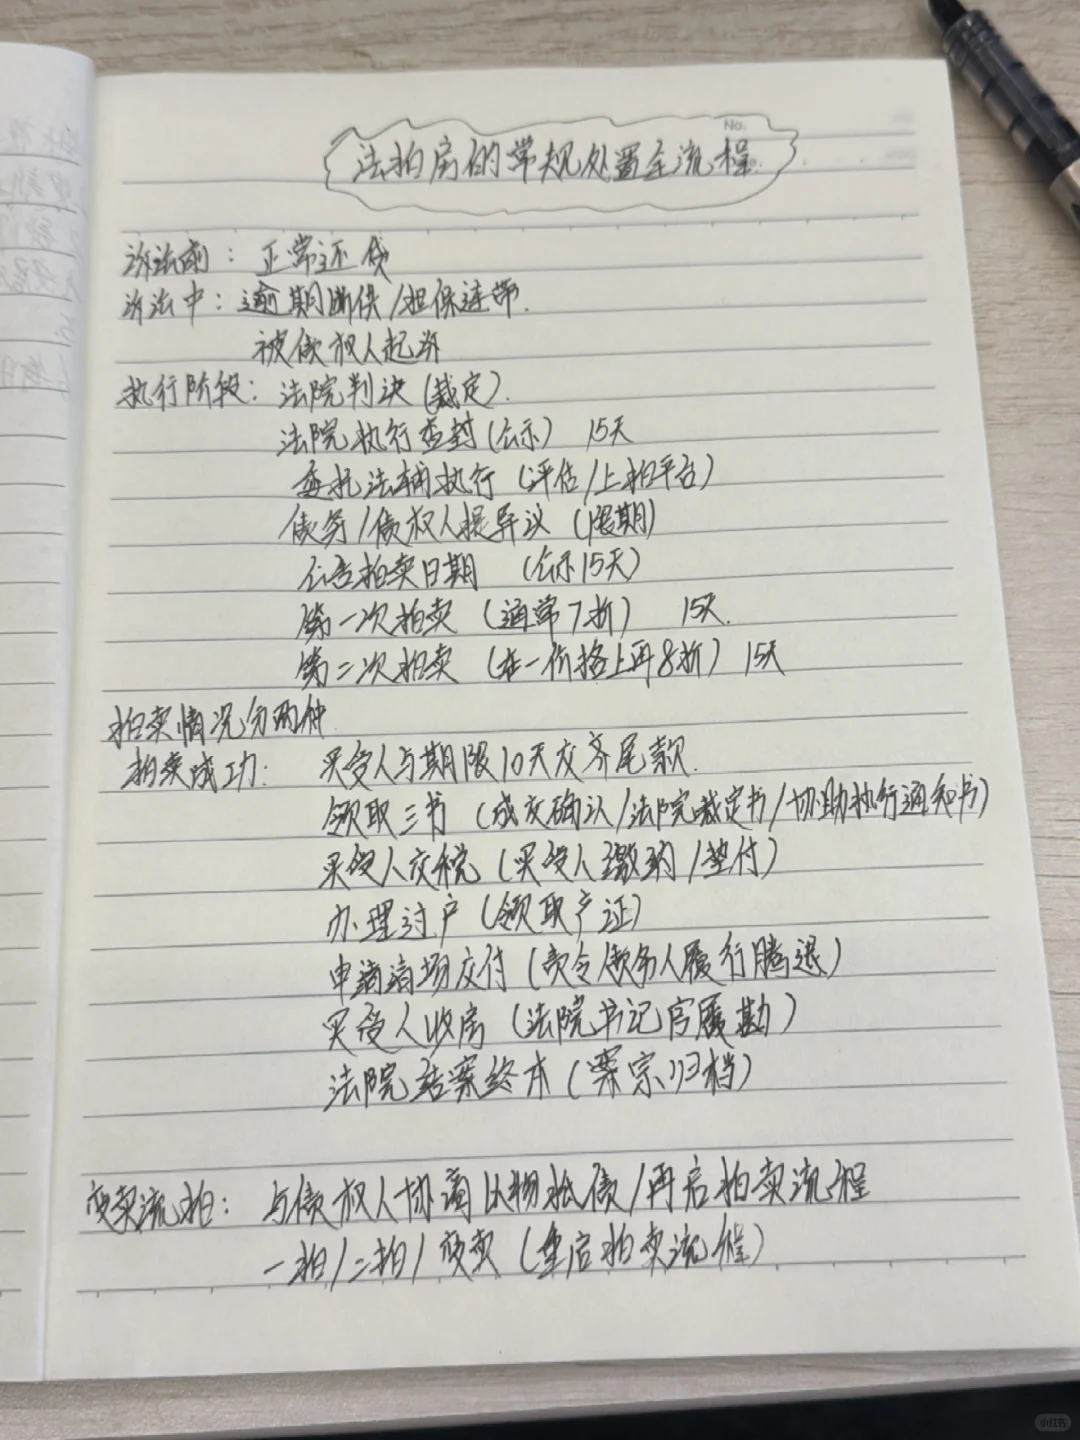 No.
法拍房的常规处置全流程
诉法前：正常还贷
诉法中：逾期断供/担保连带.
被债权人起诉
执行阶段：法院判决（裁定）.
法院执行查封（公示） 15天
委托法辅执行（评估/上拍平台）
债务/债权人提异议（限期）
公告拍卖日期 （公示15天）
第一次拍卖（通常7折） 15天.
第二次拍卖（在一价格上再8折）15天
拍卖情况分两种
拍卖成功： 买受人与期限10天交齐尾款.
领取三书（成交确认/法院裁定书/协助执行通知书）
买受人交税（买受人缴纳/垫付）
办理过户（领取产证）
申请清场交付（责令债务人履行腾退）
买受人收房（法院书记官履勘）
法院结案终本（案宗归档）
变卖流拍：与债权人协商以物抵债/再启拍卖流程
一拍/二拍/变卖（重启拍卖流程）
小红书